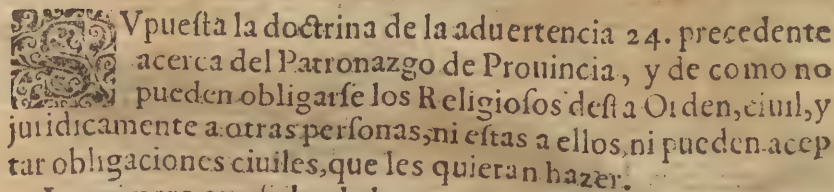 SVpueſta la doctrina de la aduertencia 24. precedente
acerca del Patronazgo de Prouincia, y de como no
pueden obligarſe los Religioſos deſta Orden, ciuil, y
juridicamente a otras perſonas, ni eſtas a ellos, ni pueden acep
tar obligaciones ciuiles, que les quieran hazer.